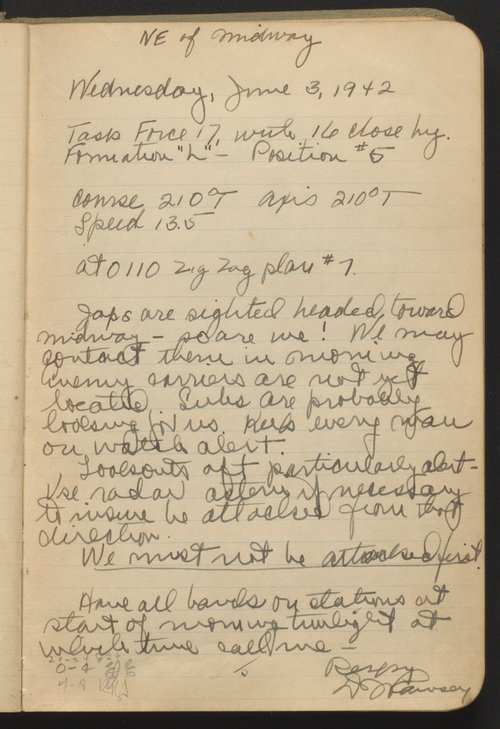 NE of Midway
Wednesday, June 3, 1942
Task Force 17, with 16 close by.
Formation "L" - Position #5
Course 210°T axis 210°T
Speed 13.5
at 0110 Zig Zag plan #7.
Japs are sighted headed toward
Midway - so are we! We may
contact them in morning
Enemy carriers are not yet
located. Subs are probably
looking for us. Keep every man
on watch alert.
Lookouts aft particularly alert -
Use radar astern if necessary
to insure be attacked from that
direction.
We must not be attacked first.
Have all hands on stations at
start of morning twilight at
which time call me -
Respy
D W Ramsey
0-4
4-8